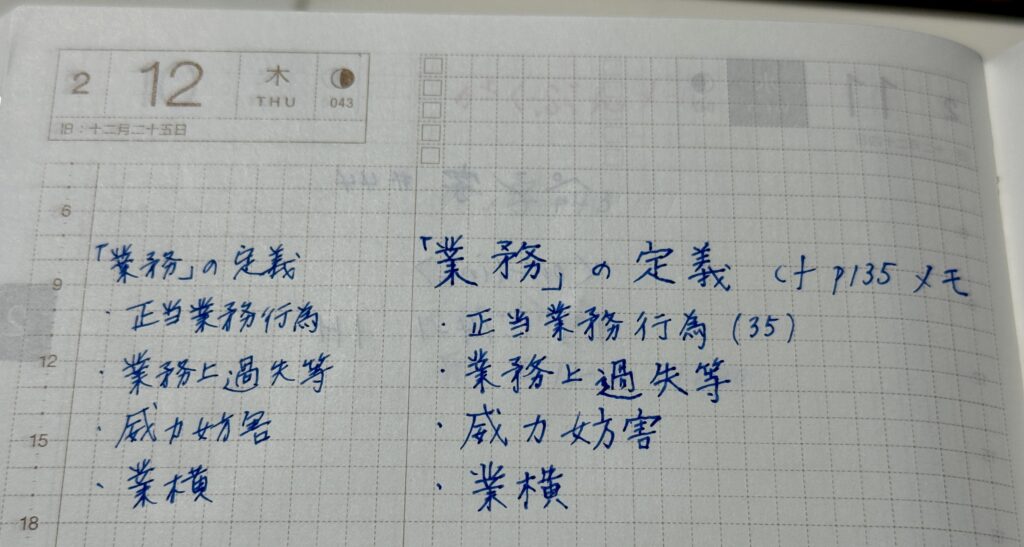 2 12 木 THU 043
旧：十二月二十五日
6
9
12
15
18
「業務」の定義
・正当業務行為
・業務上過失等
・威力妨害
・業横
「業務」の定義 cf p135 メモ
・正当業務行為（35）
・業務上過失等
・威力妨害
・業横